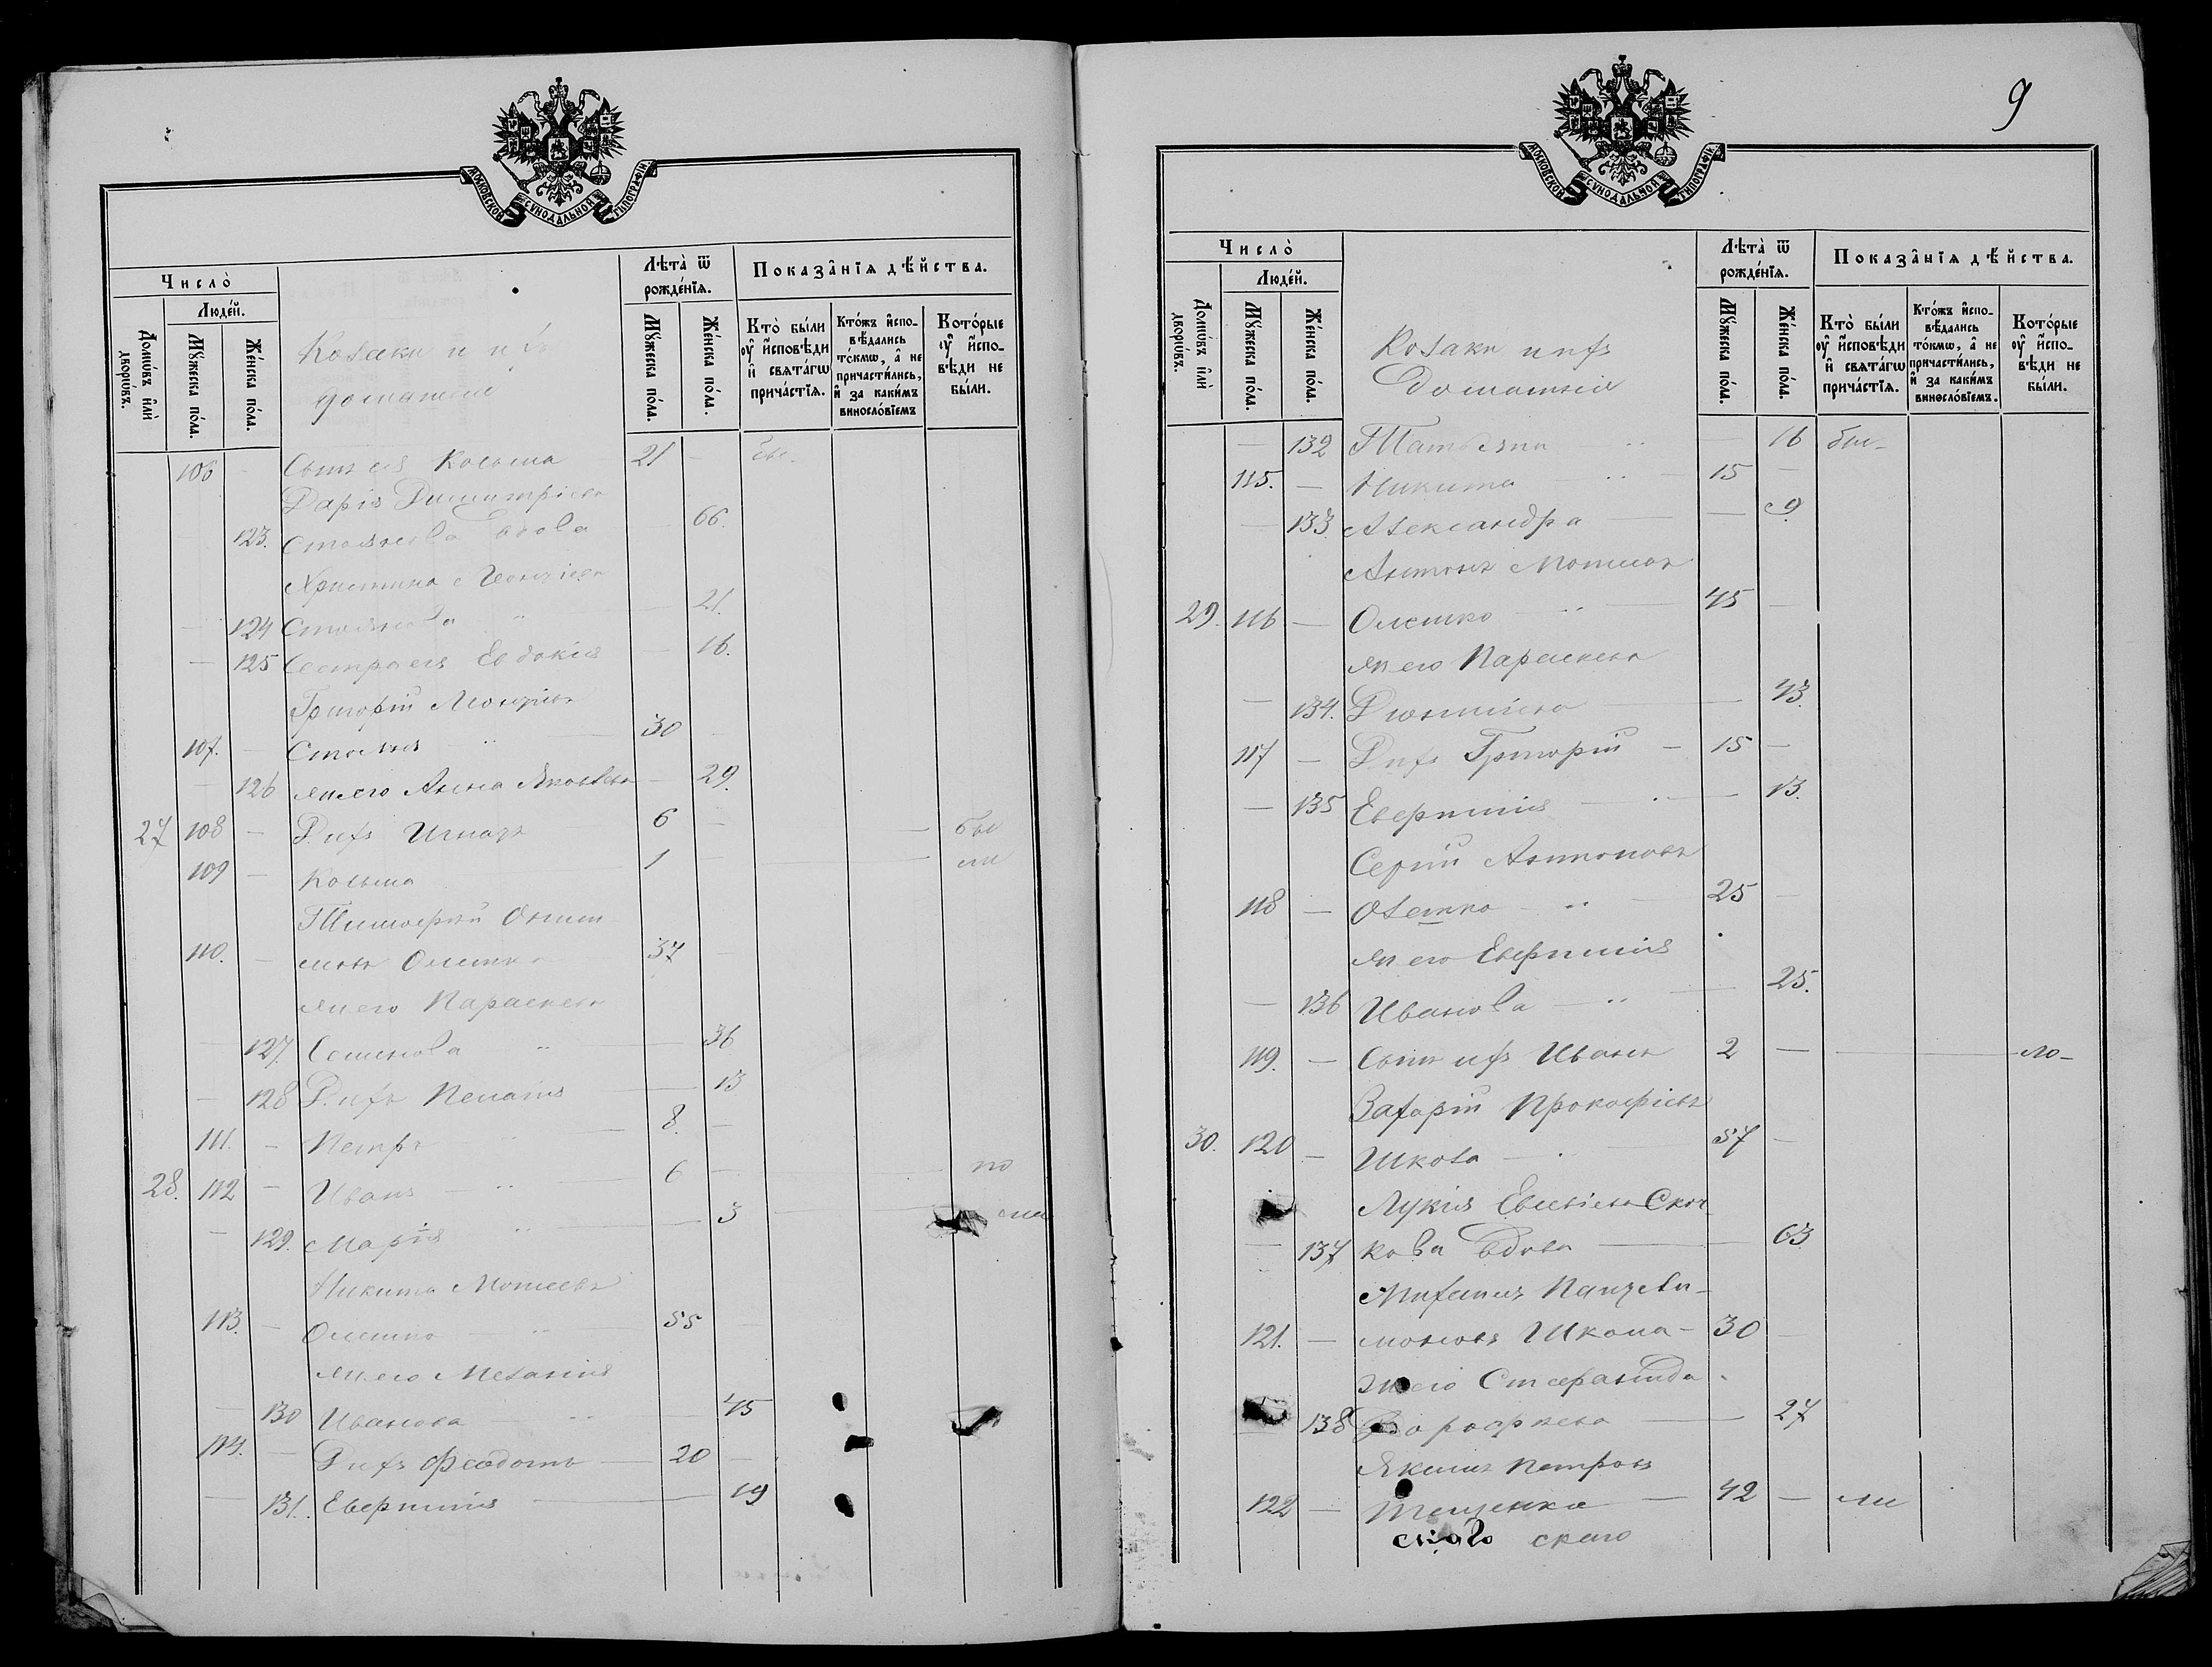 МОСКОВСКОЙ СѴНОДАЛЬНОЙ ТИПОГРАФІИ
Число̀
Людéй.
Домѡ́въ и҆лѝ дворѡ́въ.
Мꙋ́жеска по́ла.
Же́нска по́ла.
Козаки и ихъ
домашніе
Лѣта̀ ѿ рожде́нїѧ.
Мꙋ́жеска по́ла.
Же́нска по́ла.
Показа̂нїѧ дѣ́йства.
Кто̀ бы́ли ᲂу҆ и҆́сповѣди и҆ свѧта́гѡ прича́стїѧ.
Кто́жъ и҆спо­вѣ́дались то́кмѡ, а҆ не причасти́лись, и҆ за каки́мъ виносло́вїемъ
Кото́рые ᲂу҆ и҆́спо­вѣди не бы́ли.
106 - Сынъ ея Косьма 21 -
Дарія Димитріева
- 123. Стоянова вдова - 66.
Христина Леонтіева
- 124 Стоянова - 21.
- 125 Сестра ея Евдокія - 16.
Григорій Леонтіевъ
107. - Стоянъ 30 -
- 126 жена его Анна Яковлева - 29.
27 108 - Дѣти ихъ Игнатъ 6 - - бы
109 - Косьма 1 - - ли
Тимофей
110. - Олешко 37 -
жена его Параскева
- 127. Семенова - 36
- 128 Д. ихъ Пелагія - 13
111. - Петръ - 8. -
28. 112 - Иванъ - 6 - - по
- 129. Марія - 3
Никита Мотеевъ
113. - Олешко - 55 -
жена его Меланія
- 130 Иванова - 45
114. - Д. ихъ Феодотъ - 20 -
- 131. Евфимія - 19
9
МОСКОВСКОЙ СѴНОДАЛЬНОЙ ТИПОГРАФІИ
Число̀
Людéй.
Домѡ́въ и҆лѝ дворѡ́въ.
Мꙋ́жеска по́ла.
Же́нска по́ла.
Козаки и ихъ
домашніе
Лѣта̀ ѿ рожде́нїѧ.
Мꙋ́жеска по́ла.
Же́нска по́ла.
Показа̂нїѧ дѣ́йства.
Кто̀ бы́ли ᲂу҆ и҆́сповѣди и҆ свѧта́гѡ прича́стїѧ.
Кто́жъ и҆спо­вѣ́дались то́кмѡ, а҆ не причасти́лись, и҆ за каки́мъ виносло́вїемъ.
Кото́рые ᲂу҆ и҆́спо­вѣди не бы́ли.
- 132 Татьяна - 16 бы-
115. - Никита - 15 -
- 133. Александра - 9
Антонъ Мотеевъ
29. 116 - Олешко - 45 -
жена его Параскева
- 134. - 43.
117 - Д. ихъ Григорій - 15 -
- 135 Евфимія - 13.
Сергій Антоновъ
118 - Олешко - 25 -
жена его Евфимія
- 136 Иванова - 25.
119. - Сынъ ихъ Иванъ 2 - - - ло-
Захарій Прокофіевъ
30. 120 - Шкода - 57 -
Лукія
- 137 кова вдова - 63
Михаилъ Пантели-
121. - моновъ - 30 -
жена его Стефанида
138 Дорофеева - 27
Якимъ Петровъ
122 - Тещенко - 42 - ли